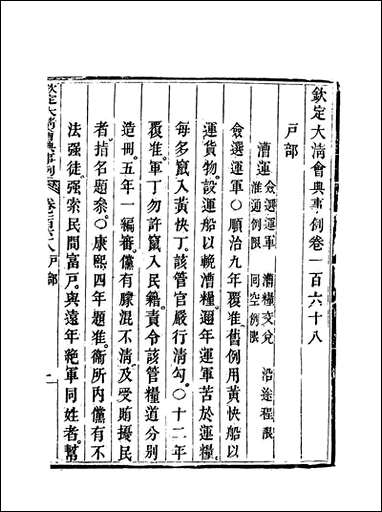 欽定大清會典事例卷一百六十八
戶部
漕運 僉選運軍 漕糧交兌 沿途程限
淮通例限 回空例限
僉選運軍○順治九年覆准舊例用黃快船以
運貨物。設運船以輓漕糧。邇年運軍苦於運糧。
每多竄入黃快丁。該管官嚴行清勾。○十二年
覆准。軍丁勿許竄入民籍。責令該管糧道分別
造冊。五年一編審。儻有朦混不清。及受賄擾民
者。指名題參。○康熙四年題准。衞所內儻有不
法強徒。強索民間富戶。與遠年絕軍同姓者。幫
欽定大清會典事例 卷一百六十八 戶部 一